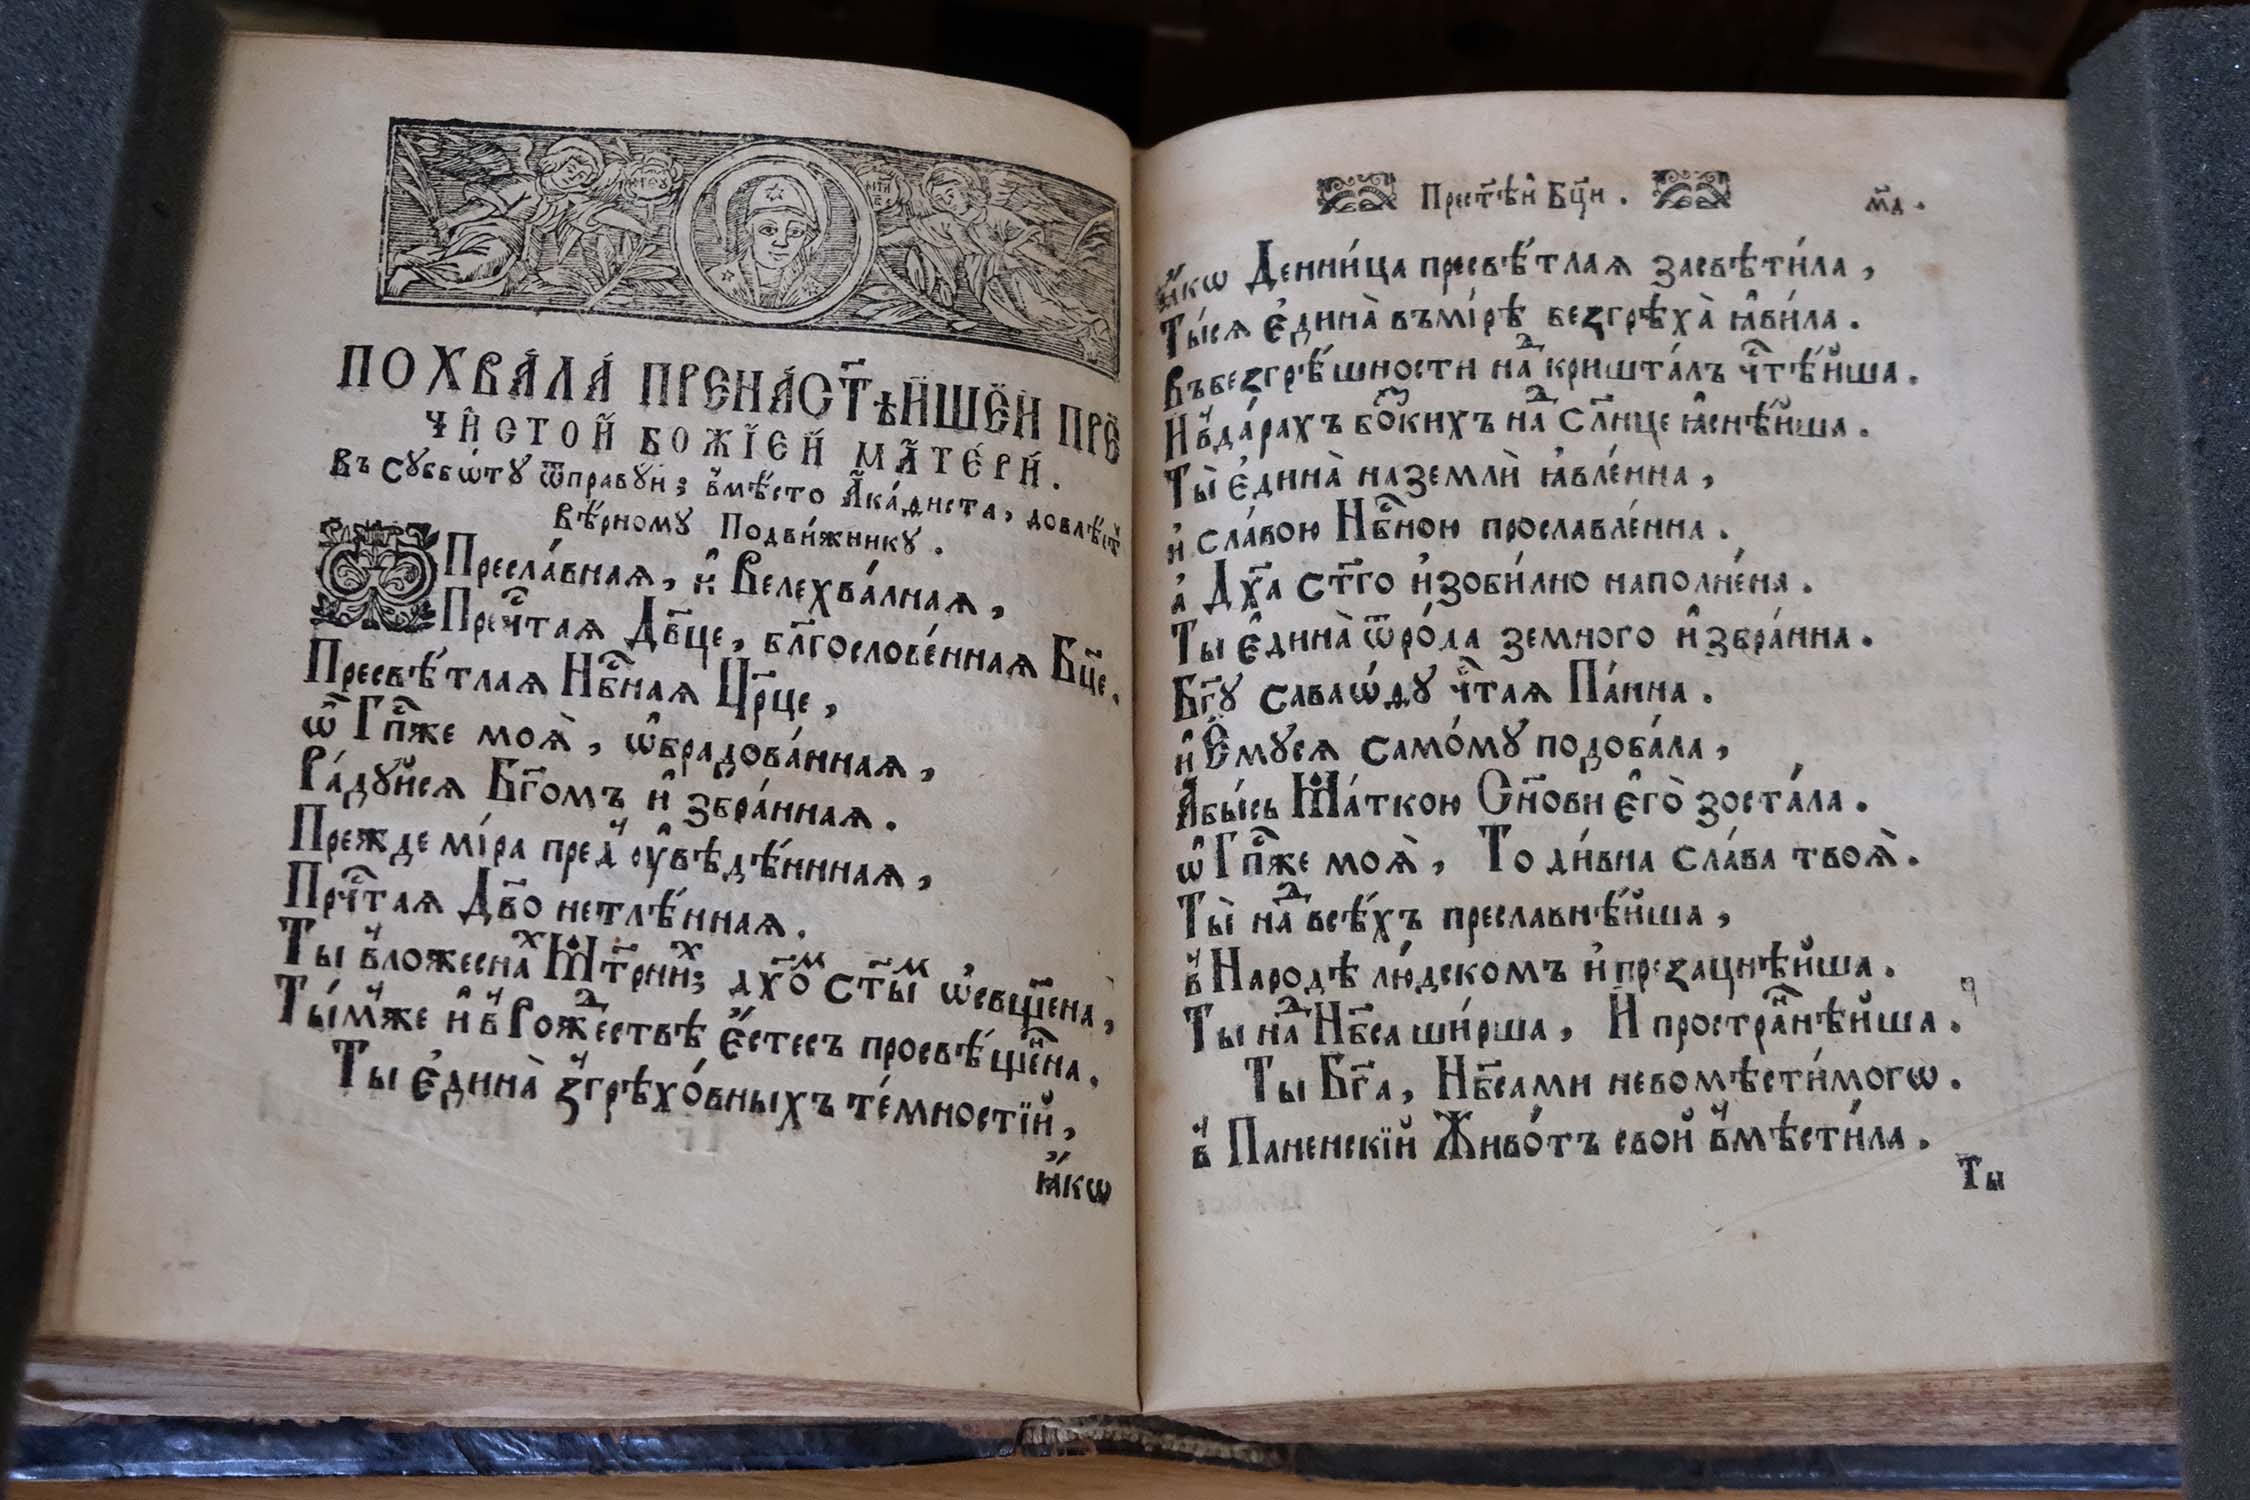 ПОХВАЛА́ ПРЕНА́СТ҃ѢЙШЕЙ ПРЕ
ЧИСТОЙ БОЖІЕЙ МАТЕ́РИ.
Въ сꙋббѡ́тꙋ ѿправꙋй; в̾мѣ́сто Ака́ѳиста, довлѣ́ет̾
Вѣ́рномꙋ Подви́жникꙋ.
Пресла́вная, и҆ Велехва́лная,
Пречⷭ҇тая Дв҃це, бл҃гослове́нная Бц҃е,
Пресвѣ́тлая Нбⷭ҇ная Цр҃це,
ѽ Гпⷭ҇же моѧ̀, ѡ҆брадова́нная,
Ра́дꙋйсѧ Бг҃омъ и҆збра́нная.
Прежде мі́ра пред̾ ᲂу҆вѣдѣ́ннная,
Прчⷭ҇тая Дв҃о нетлѣ́нная.
Ты в̾ложеснаⷯ Мт҃рниⷯ; дх҃оⷨ ст҃ыⷨ ѡ҆свщ҃ена,
Ты́мⸯже и҆ в̾ Рожⷣествѣ є҆́стесь просвѣ́щеⷩ҇на.
Ты є҆дина̀ з̾грѣхо́вныхъ те́мностїй,
ꙗ҆́кѡ
Прест҃ѣй Бц҃и.
м҃д.
ꙗ҆́кѡ Денни́ца пресвѣ́тлая засвѣти́ла,
Ты́сѧ є҆дина̀ въмі́рѣ безгрѣха̀ ꙗ҆ви́ла.
Въбезгрѣ́шности наⷣ кришта́лъ чⷭ҇тѣ́йша.
И҆ в̾да́рахъ бо҃кихъ наⷣ сл҃нце ꙗ҆снѣ́йша.
Ты̀ є҆дина̀ наземлѝ ꙗ҆вле́нна,
и҆ сла́вою Нбⷭ҇ною прославле́нна.
а҆ Дх҃а ст҃го и҆зоби́лно наполне́на.
Ты є҆дина̀ ѿро́да земного и҆збра́нна.
Бг҃ꙋ саваѡ́ѳꙋ чⷭ҇тая Па́нна.
и҆ Е҆мꙋсѧ само́мꙋ подоба́ла,
Абы́сь Ма́ткою Сн҃ови є҆гѡ̀ зоста́ла.
ѽ Гпⷭ҇же моѧ̀, То ди́вна сла́ва твоѧ̀.
Ты̀ наⷣ всѣ́хъ преславнѣ́йша,
в̾ Народѣ лю́дскомъ и҆презацнѣ́йша.
Ты наⷣ Нб҃са ши́рша, И҆ простраⷩ҇нѣ́йша.
Ты Бг҃а, Нб҃сами невомѣсти́могѡ.
в̾ Паненскїй Живо́тъ свой в̾мѣсти́ла.
Ты